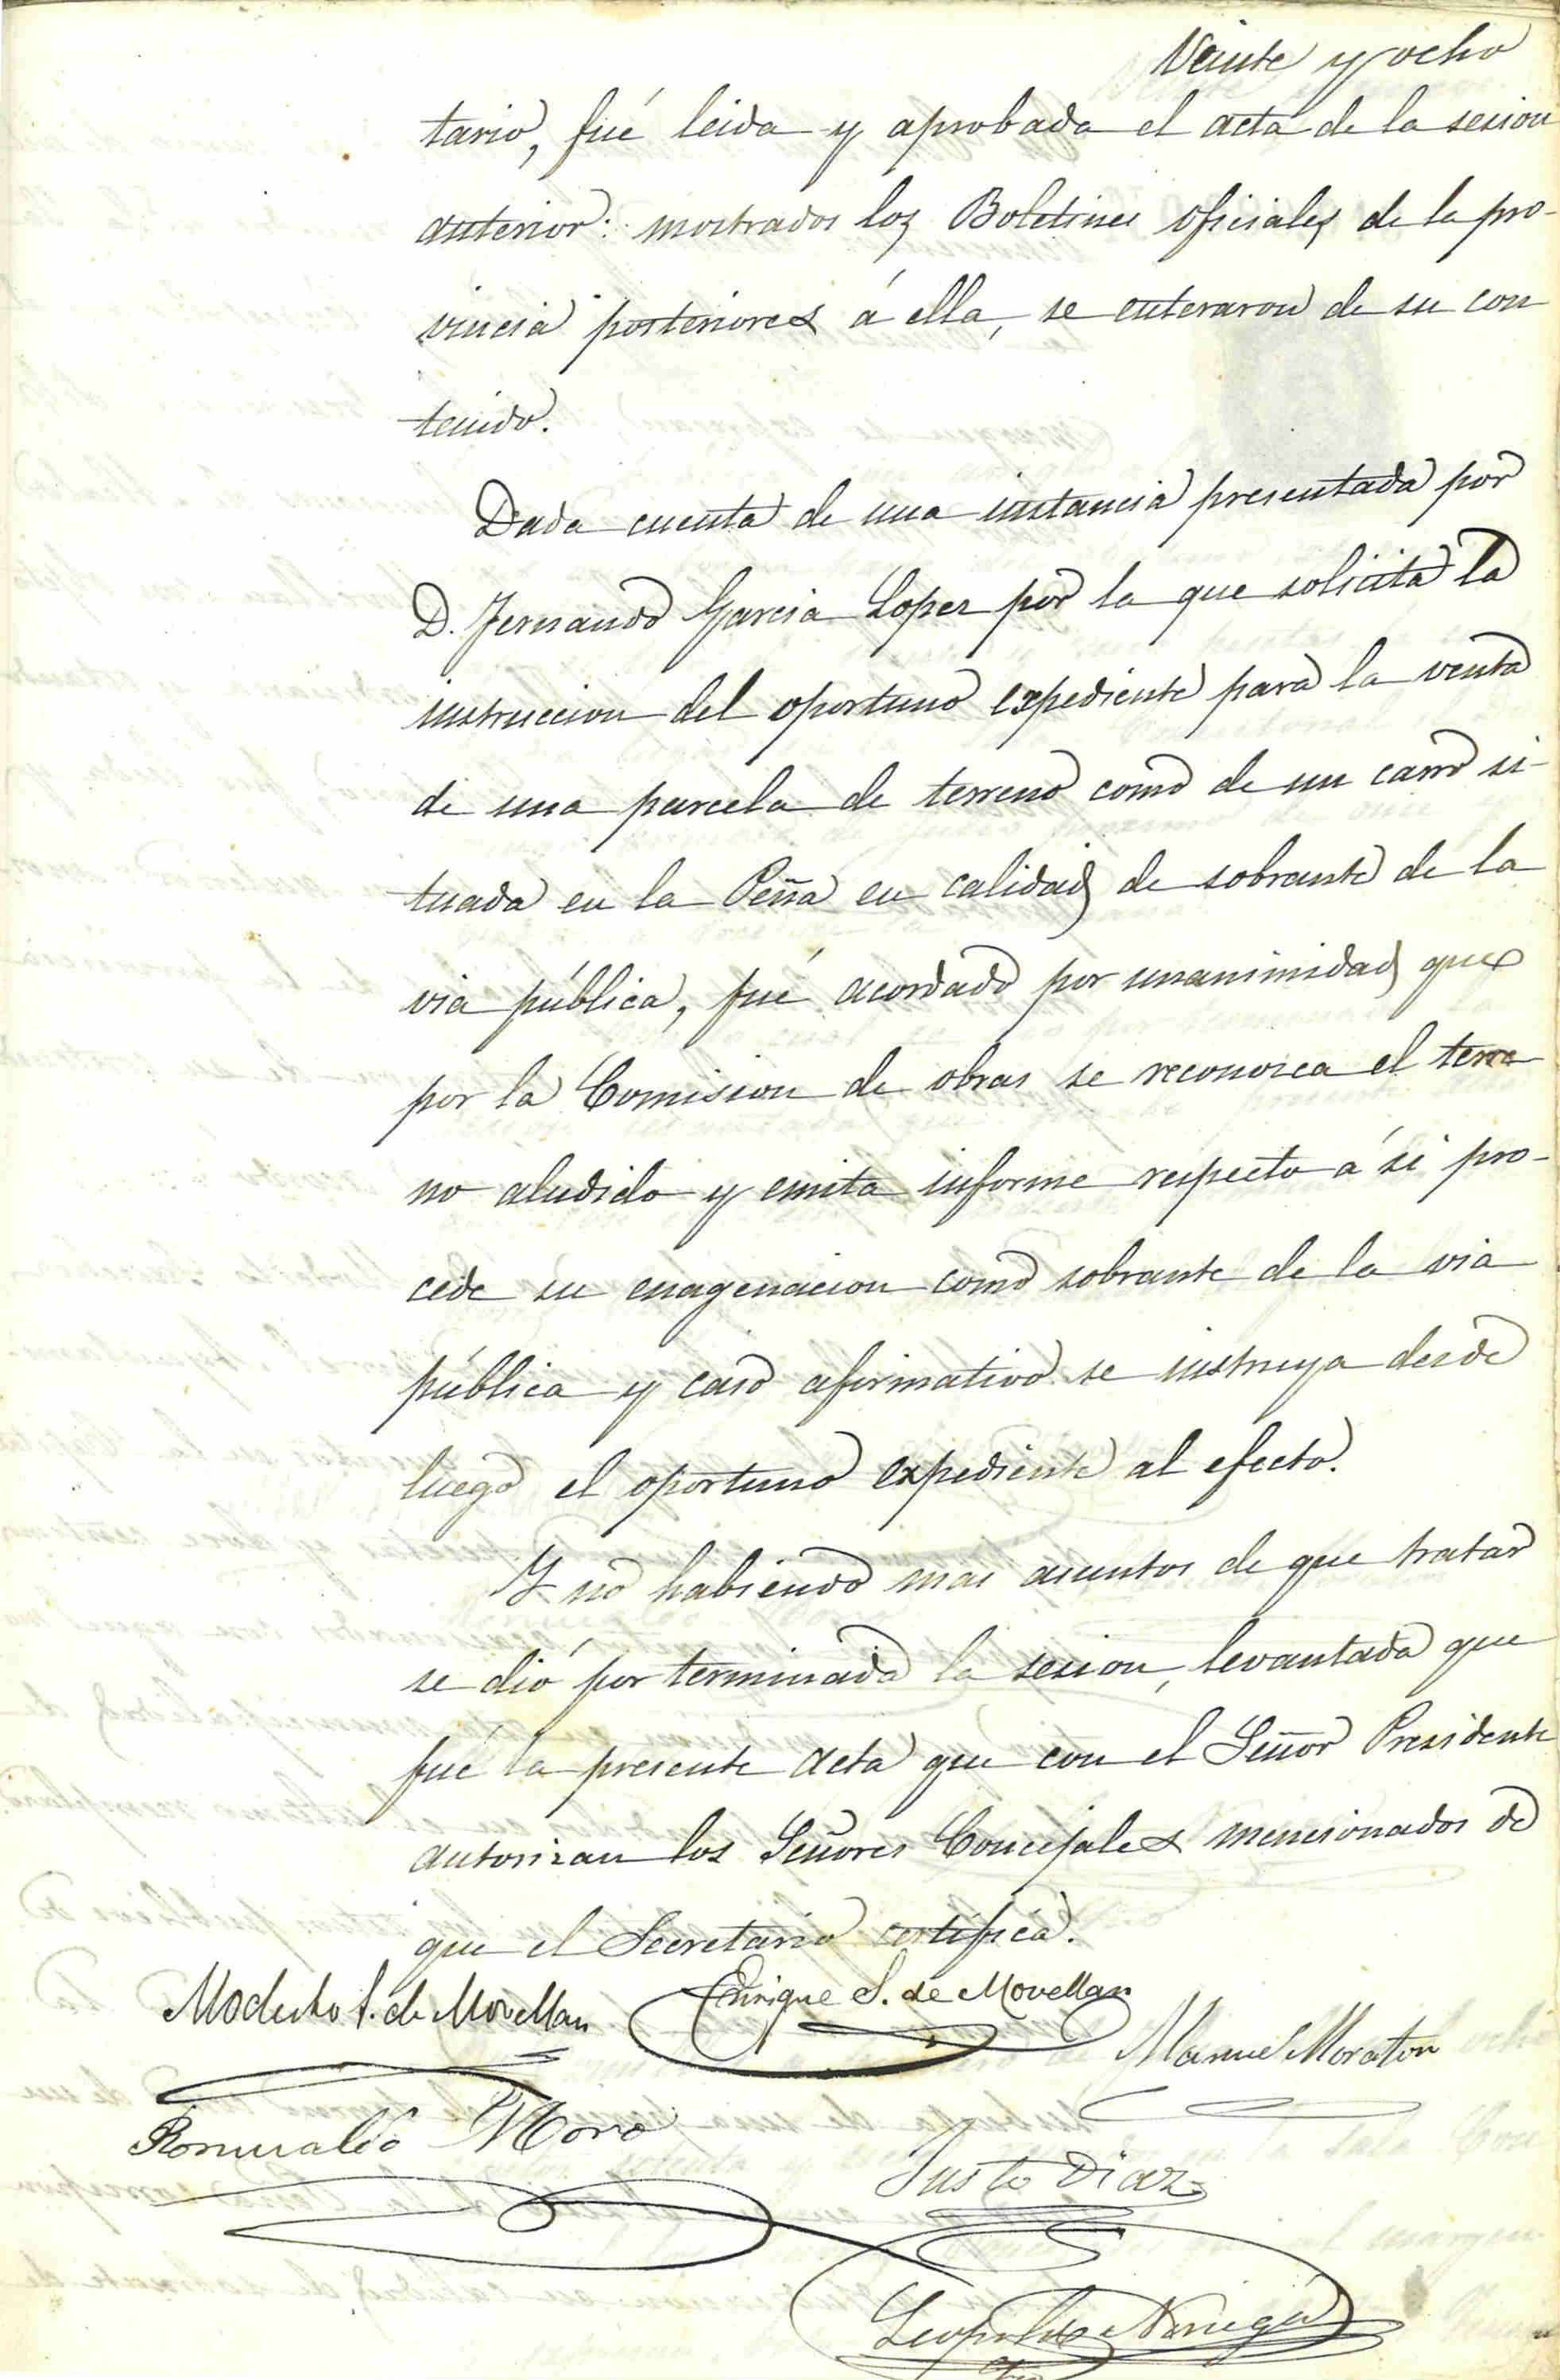 Veinte y ocho
tario, fué leida y aprobada el acta de la sesion
anterior: mostrados los Boletines oficiales de la pro-
vincia posteriores á ella, se enteraron de su con
tenido.
Dada cuenta de una instancia presentada por
D. Fernando Garcia Lopez por la que solicita la
instruccion del oportuno expediente para la venta
de una parcela de terreno como de un carro si-
tuada en la Peña en calidad de sobrante de la
via pública, fué acordado por unanimidad que
por la Comision de obras se reconozca el terre
no aludido y emita informe respecto á si pro-
cede su enagenacion como sobrante de la via
pública y caso afirmativo se instruya desde
luego el oportuno expediente al efecto.
Y no habiendo mas asuntos de que tratar
se dió por terminada la sesion, levantada que
fué la presente acta que con el Señor Presidente
autorizan los Señores Concejales mencionados de
que el Secretario certifica.
Modesto S. de Movellan
Enrique S. de Movellan
Manuel Moraton
Romualdo Moro
Justo Diaz
Leopoldo Noriega